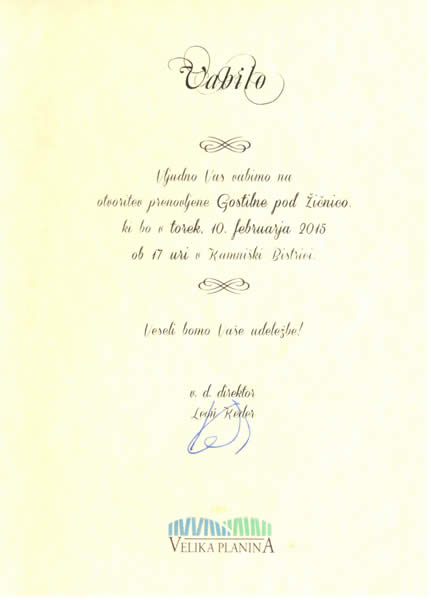 Vabilo
Vljudno Vas vabimo na
otvoritev prenovljene Gostilne pod Žičnico,
ki bo v torek, 10. februarja 2015
ob 17 uri v Kamniški Bistrici.
Veseli bomo Vaše udeležbe!
v. d. direktor
Leon Keder
VELIKA PLANINA